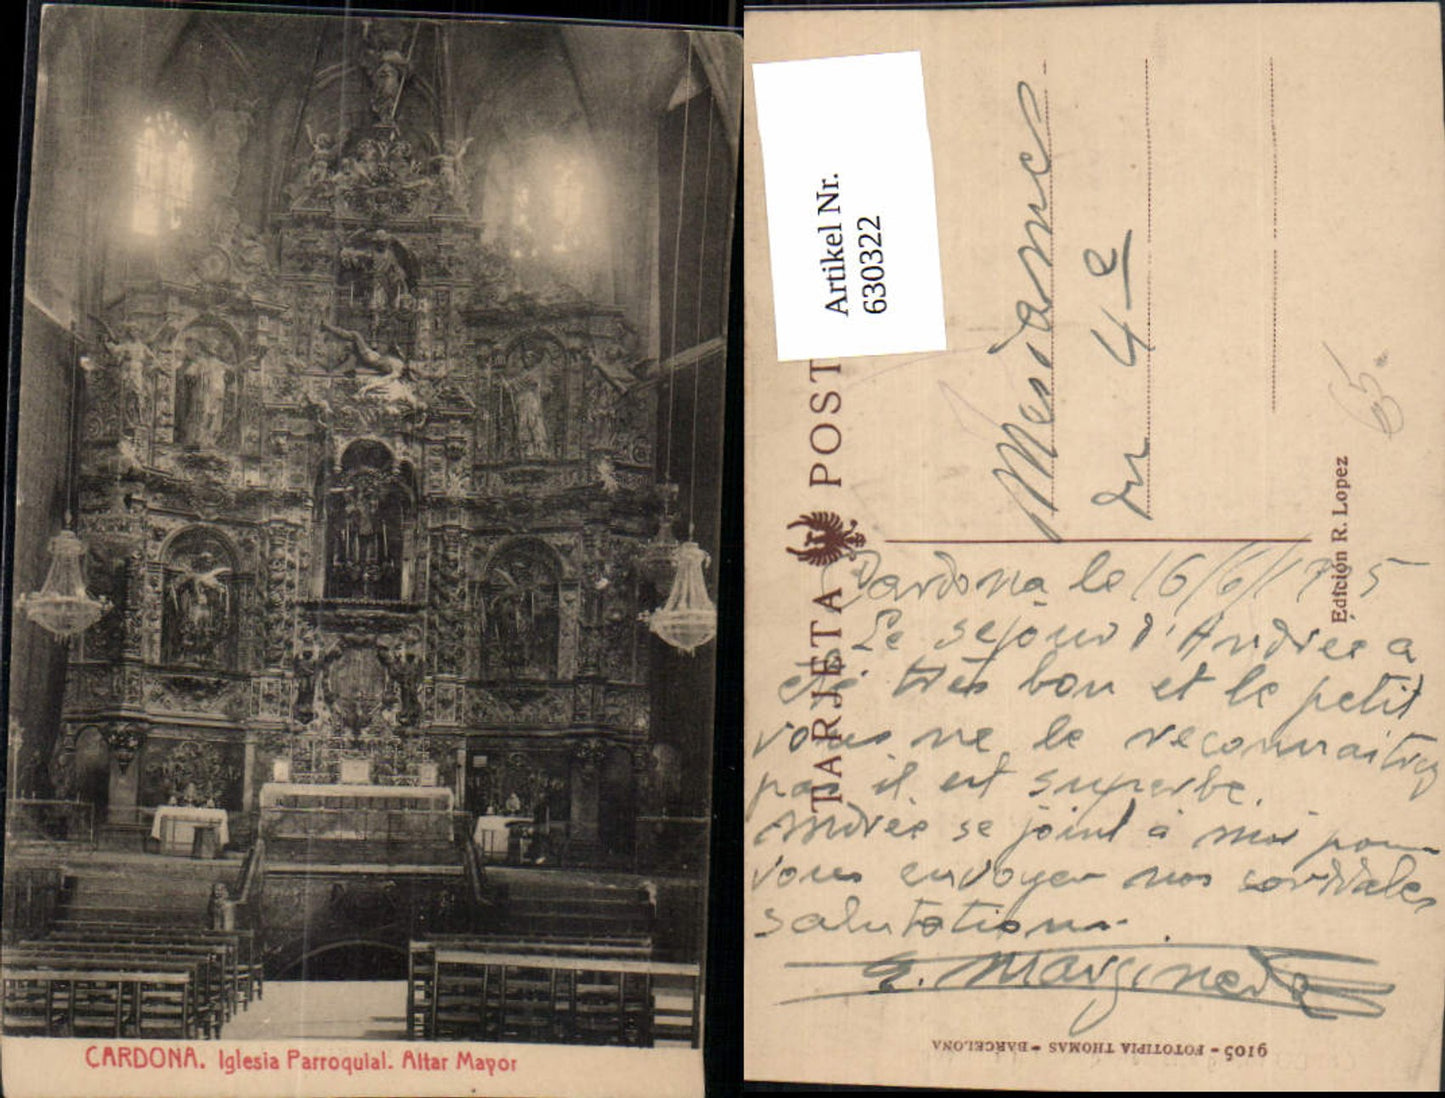 CARDONA. Iglesia Parroquial. Altar Mayor
Artikel Nr.
630322
TARJETA POST
Mesdames
du 4e
65.
Edición R. Lopez
Cardona le 16/6/
Le séjour d'Andrée a
été très bon et le petit
vous ne le reconnaitrez
pas il est superbe.
Andrée se joint à moi pour
vous envoyer nos cordiales
salutations.
Margineda
9105 - FOTOTIPIA THOMAS - BARCELONA